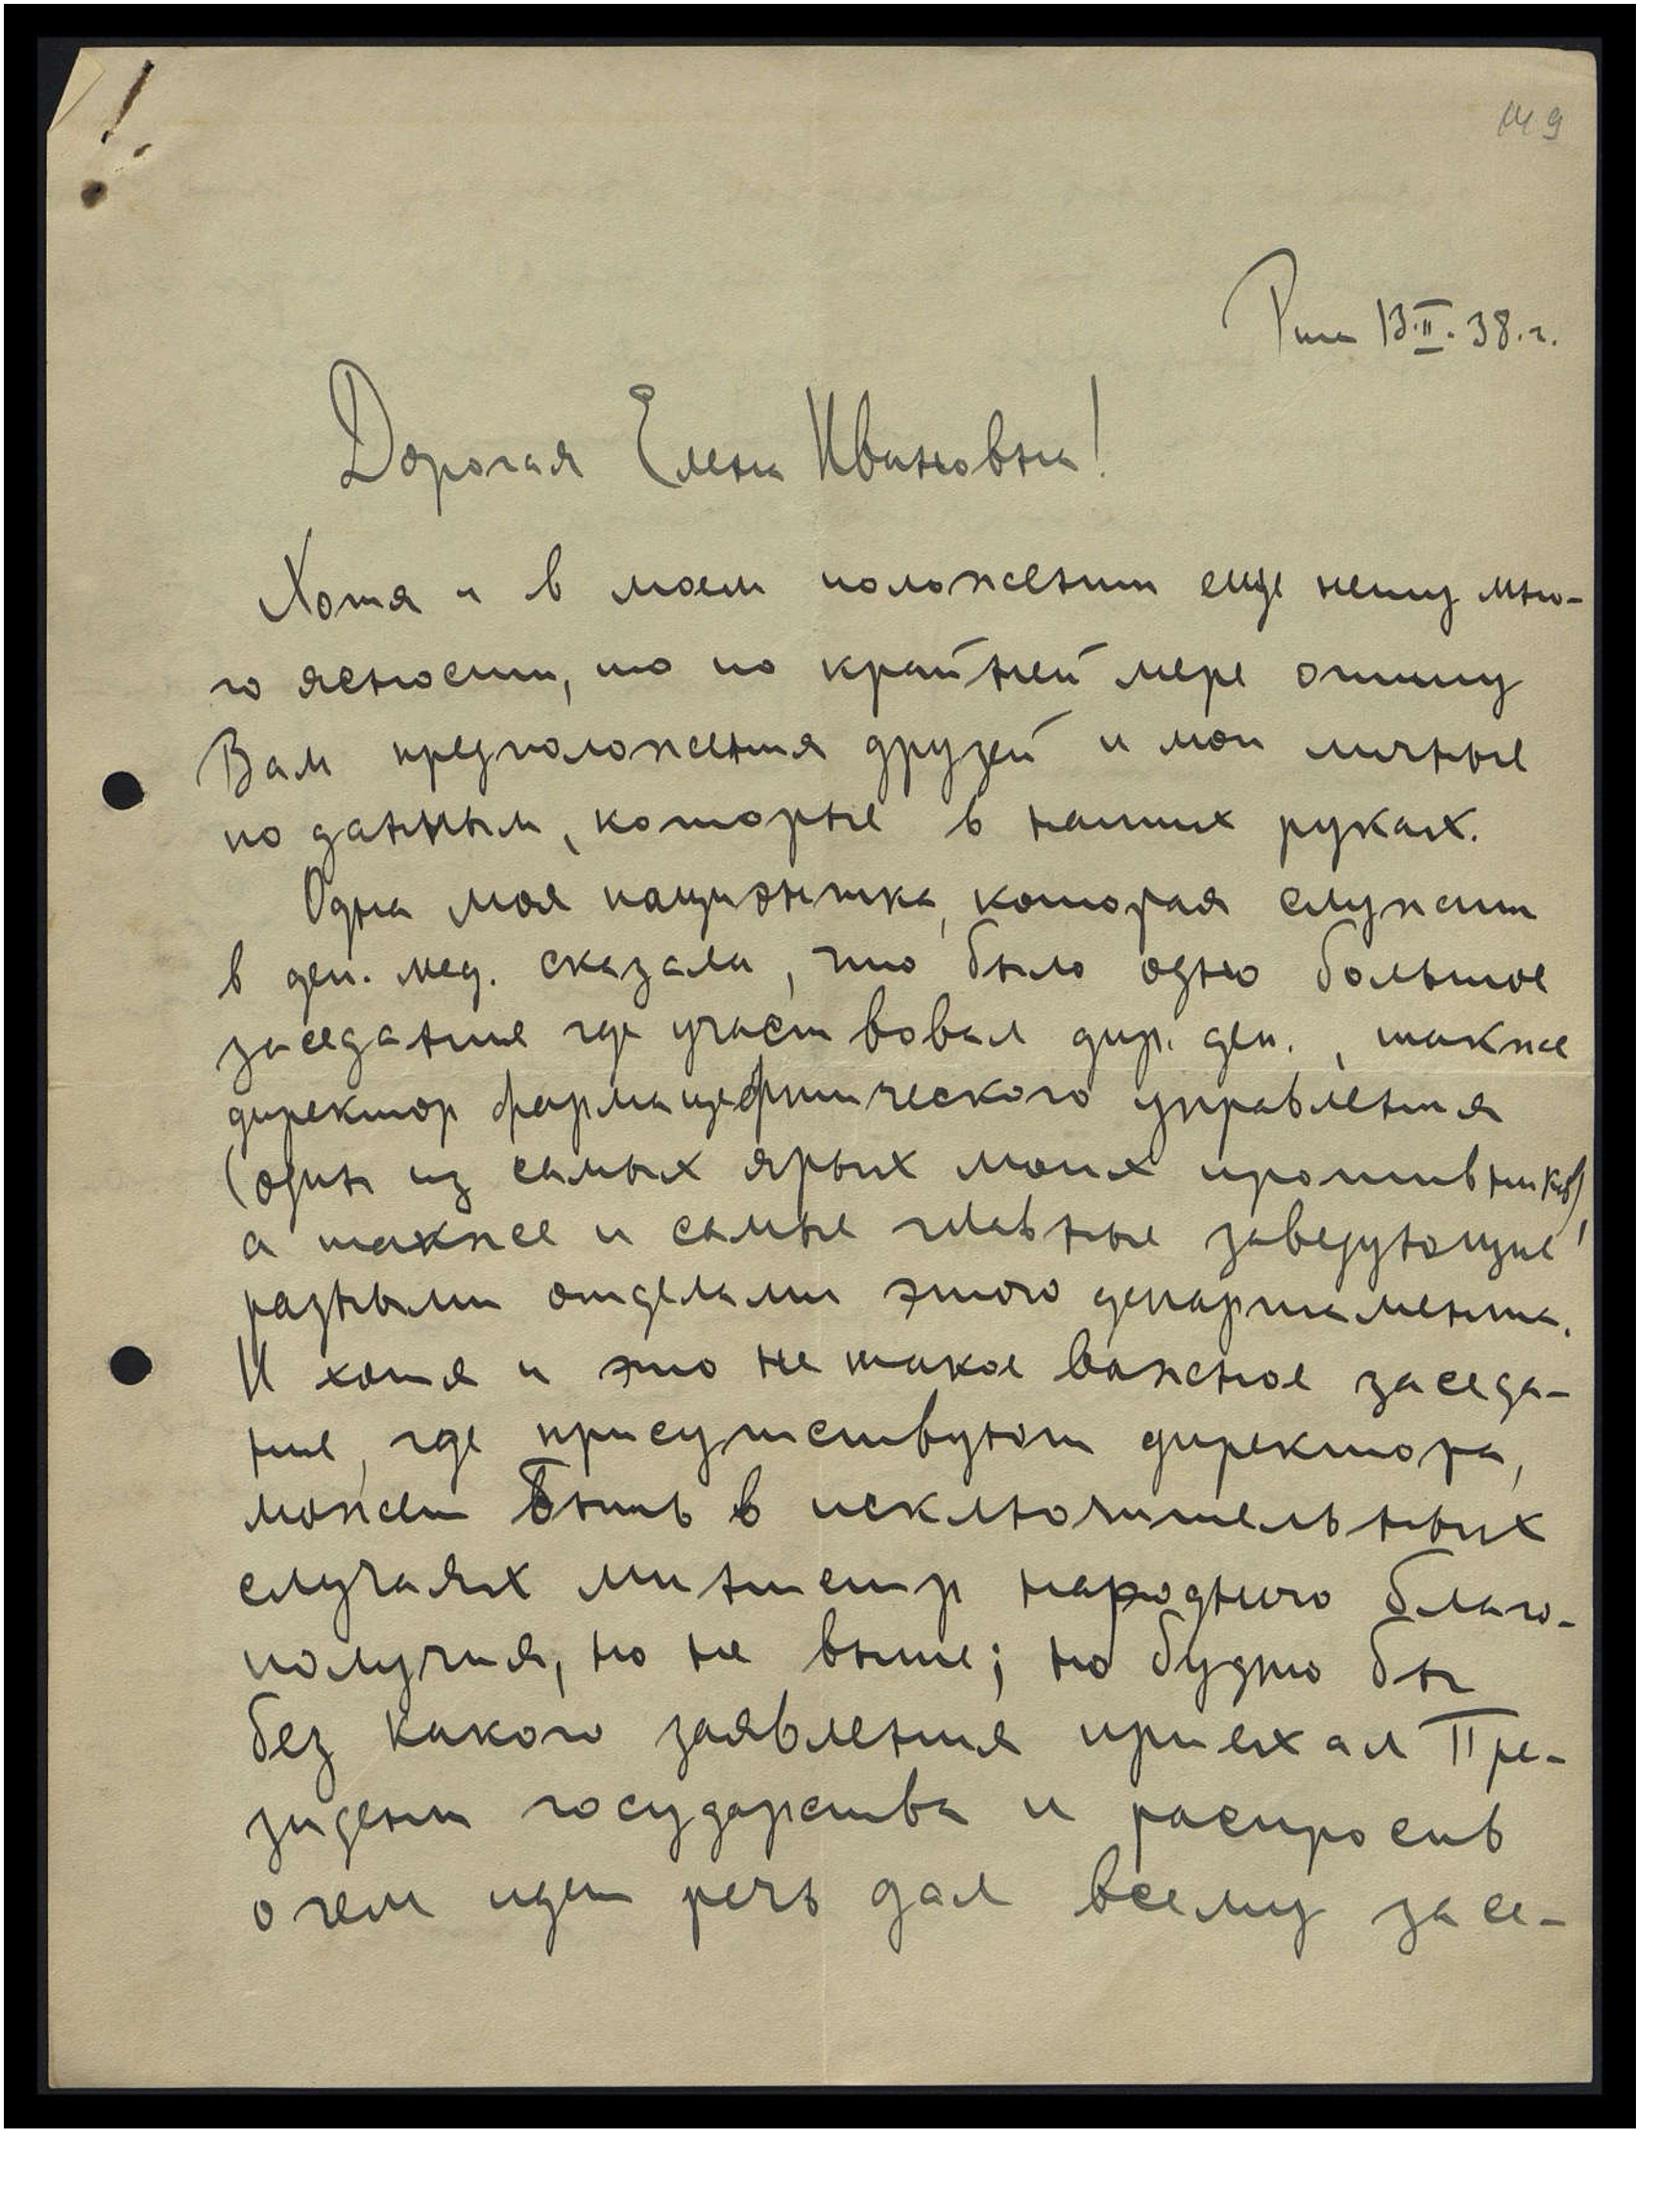 Рига 13.II.38.г.
Дорогая Елена Ивановна!
Хотя и в моем положении еще нету мно-
го ясности, то по крайней мере опишу
Вам предположения друзей и мои личные
по данным, которые в наших руках.
Одна моя пациэнтка, которая служит
в деп. мед. сказала, что было одно большое
заседание где участвовал дир. деп., также
директор фармацефтического управления
(один из самых ярых моих противников),
а также и самые главные заведующие
разными отделами этого департамента.
И хотя и это не такое важное заседа-
ние, где присутствуют директора,
может быть в исключительных
случаях министр народного благо-
получия, но не выше; но будто бы
без какого заявления приехал Пре-
зидент государства и распросив
о чем идет речь дал всему засе-